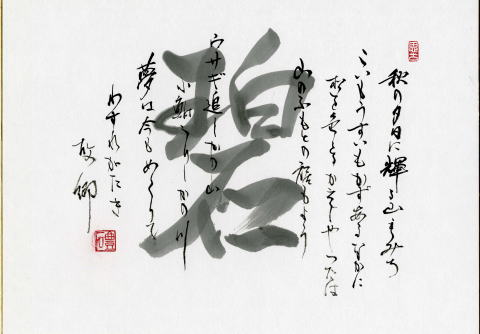 秋の夕日に輝る山もみぢ
こいもうすいもかずあるなかに
松を色どるかえでやつたは
山のふもとの裾もよう
ウサギ追しかの山
小鮒つりしかの川
夢は今もめぐりて
わすれがたき
故郷
碧